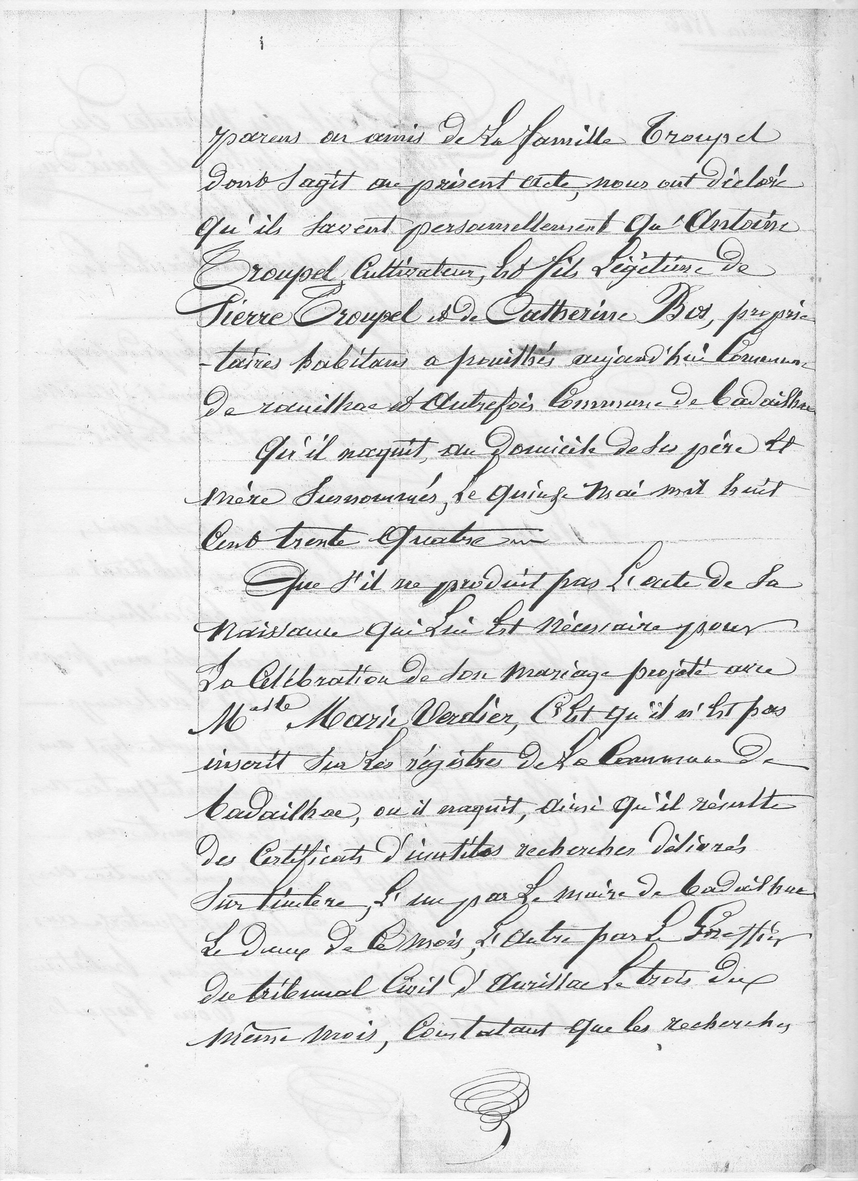 parens ou amis de La famille Troupel
dont Sagit au présent acte, nous ont déclaré
qu'ils Savent personnellement Qu'Antoine
Troupel, Cultivateur, Est fils Légitime de
Pierre Troupel et de Catherine Bos, proprié-
-taires habitans a pouthés aujourd'hui Commune
de raulhac et Autrefois Commune de badailhac
Qu'il naquit, au Domicile de Ses père Et
mère Surnommés, Le quinze mai mil huit
Cent trente Quatre
Que S'il ne produit pas L'acte de Sa
Naissance qui Lui Est nécessaire pour
La Célébration de Son mariage projeté avec
Marie Verdier, C'Est qu'il n'Est pas
inscrit Sur Les régistres de La Commune de
badailhac, ou il naquit, ainsi qu'il résulte
des Certificats d'inutiles recherches délivrés
Sur timbre, L'un par Le maire de badailhac
Le deux de Ce mois, L'autre par Le Greffier
du tribunal Civil d'Aurillac Le trois du
même mois, Constatant que les recherches